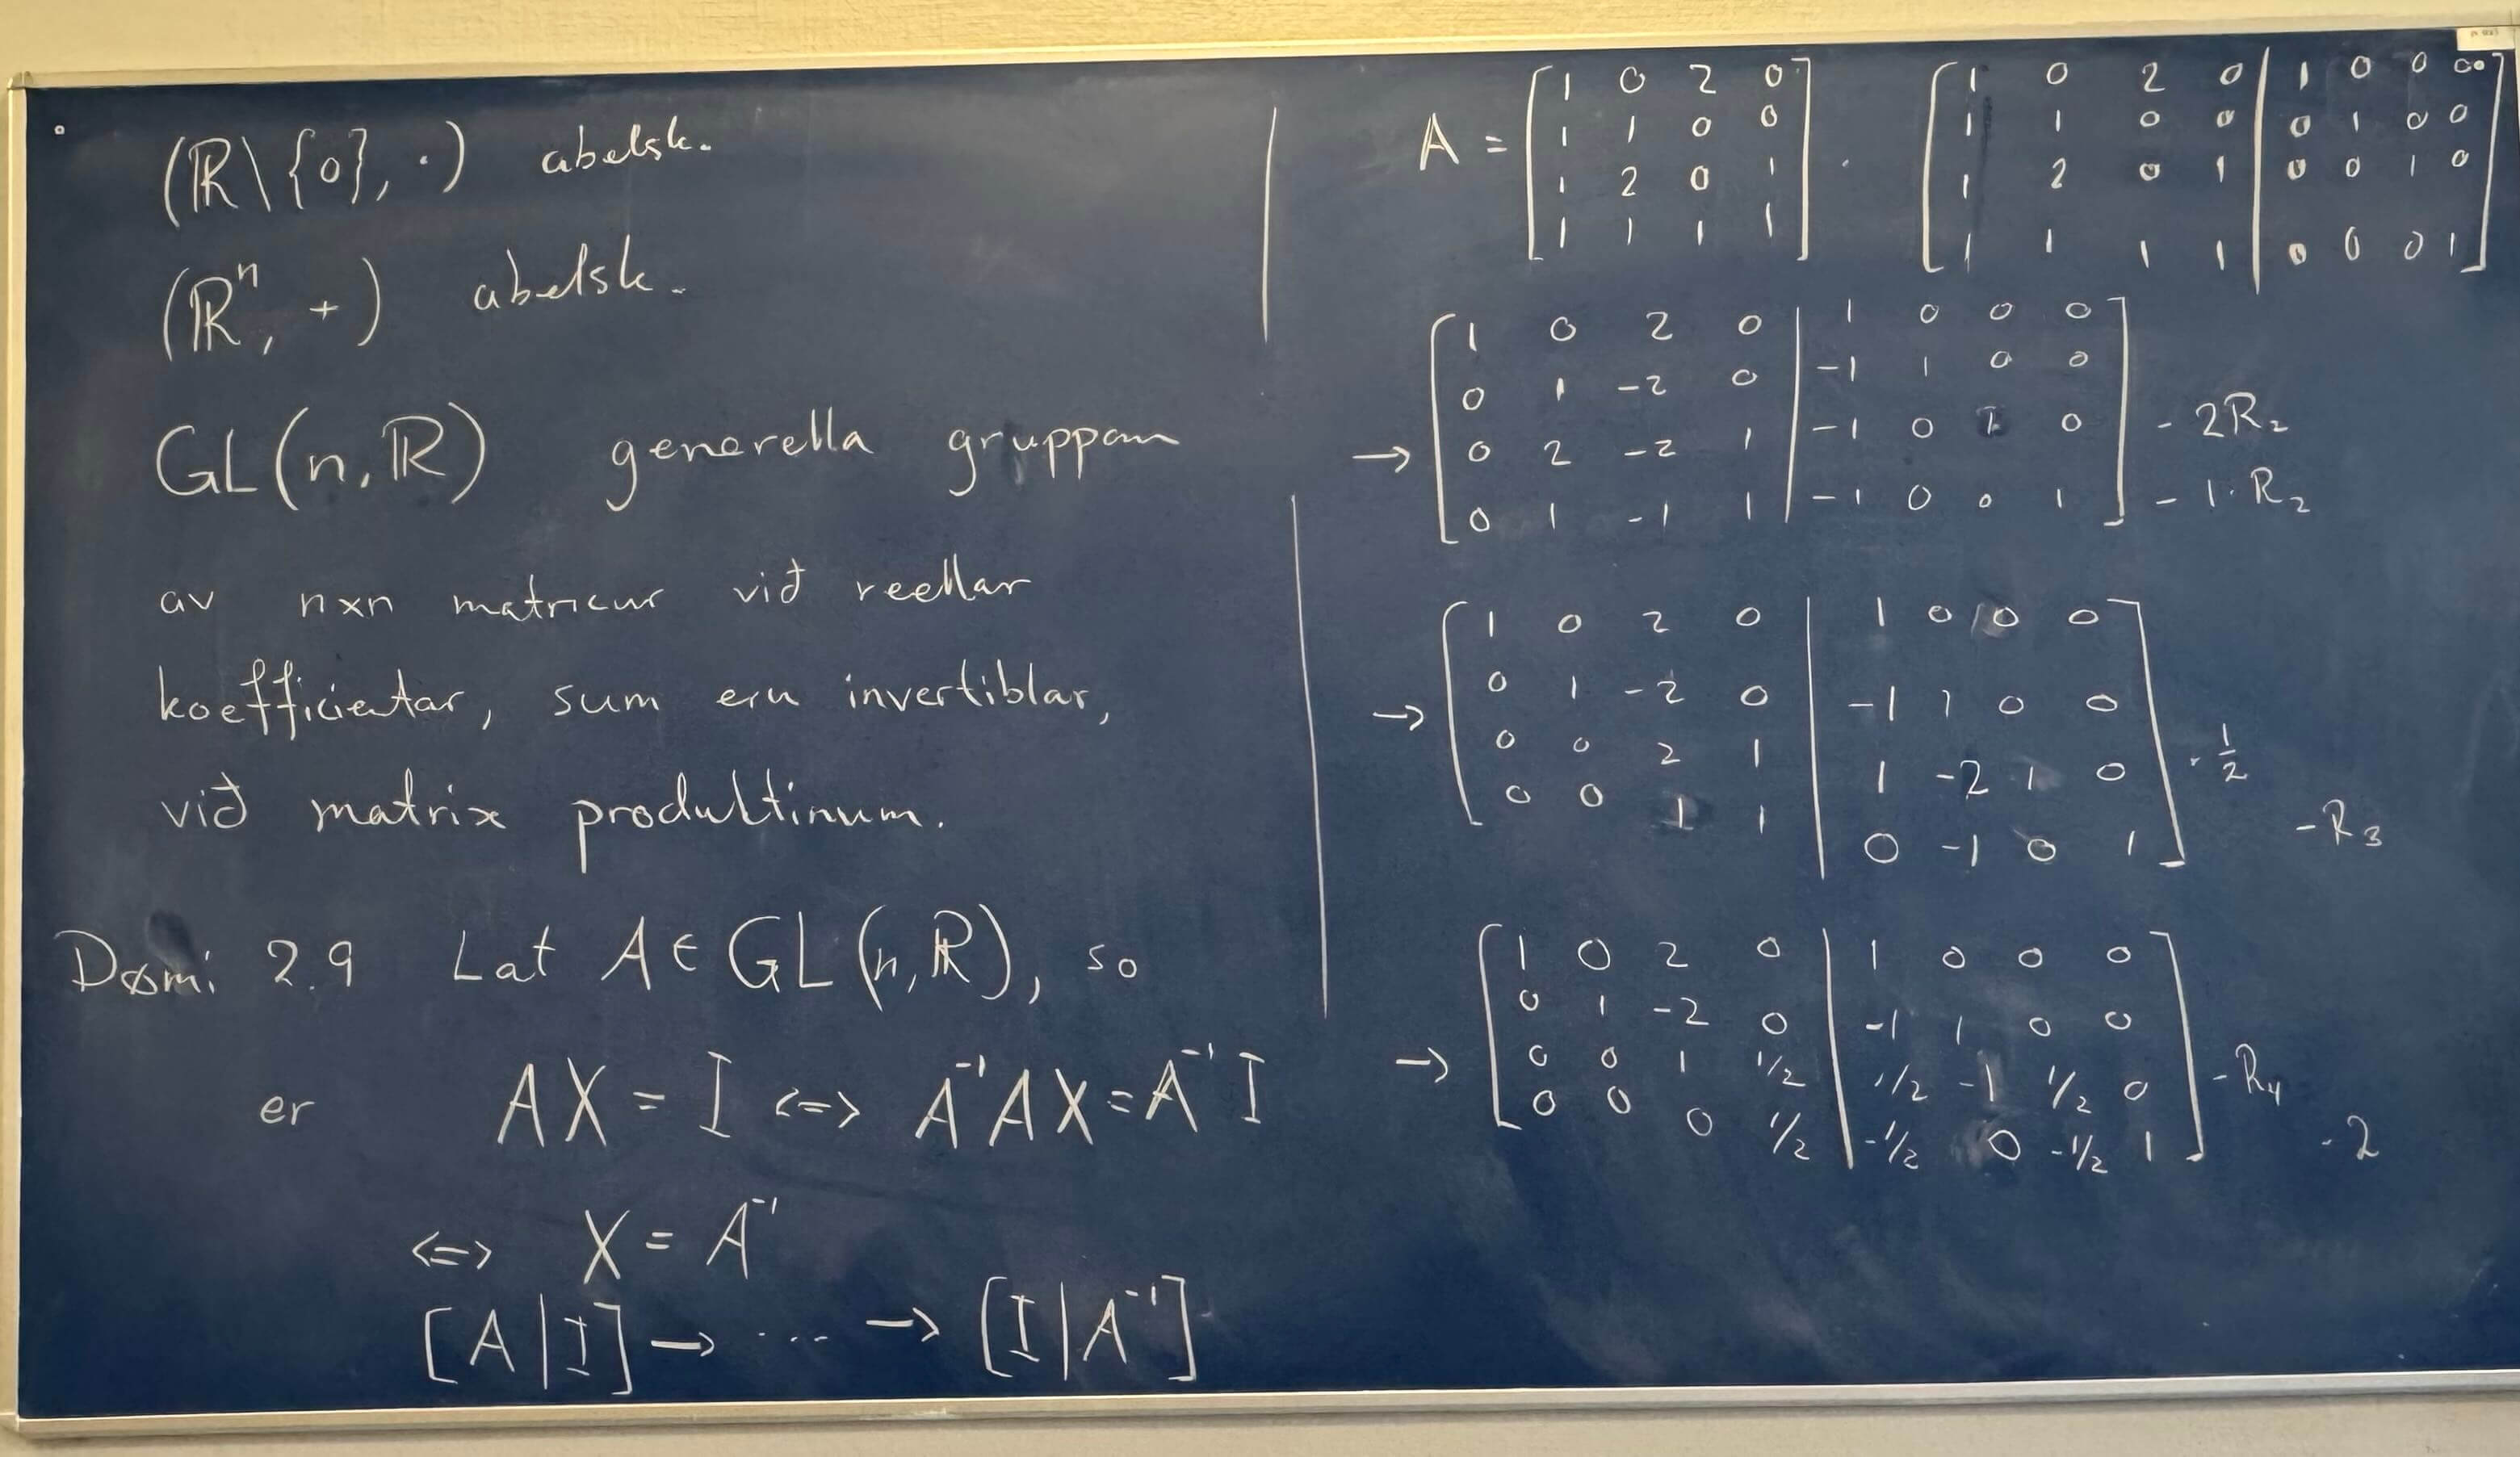 (ℝ\{0}, ·) abelsk.
(ℝⁿ, +) abelsk.
GL(n, ℝ) generella gruppan
av n×n matricur við reellar
koefficientar, sum eru invertiblar,
við matrix produktinum.
Dømi 2.9 Lat A ∈ GL(n, ℝ), so
er AX = I <=> A⁻¹AX = A⁻¹I
<=> X = A⁻¹
[A|I] → ... → [I|A⁻¹]
A = [1 0 2 0
1 1 0 0
1 2 0 1
1 1 1 1]
[1 0 2 0 | 1 0 0 0
1 1 0 0 | 0 1 0 0
1 2 0 1 | 0 0 1 0
1 1 1 1 | 0 0 0 1]
→ [1 0 2 0 | 1 0 0 0
0 1 -2 0 | -1 1 0 0
0 2 -2 1 | -1 0 1 0] - 2R₂
0 1 -1 1 | -1 0 0 1] - 1·R₂
→ [1 0 2 0 | 1 0 0 0
0 1 -2 0 | -1 1 0 0
0 0 2 1 | 1 -2 1 0] · 1/2
0 0 1 1 | 0 -1 0 1] -R₃
→ [1 0 2 0 | 1 0 0 0
0 1 -2 0 | -1 1 0 0
0 0 1 1/2 | 1/2 -1 1/2 0] -R₄
0 0 0 1/2 | -1/2 0 -1/2 1] ·2